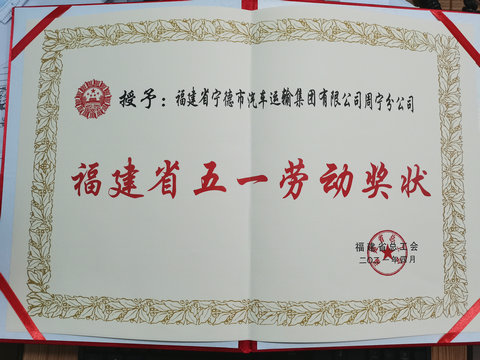 授予：福建省宁德市汽车运输集团有限公司周宁分公司
福建省五一劳动奖状
福建省总工会
二〇二一年四月